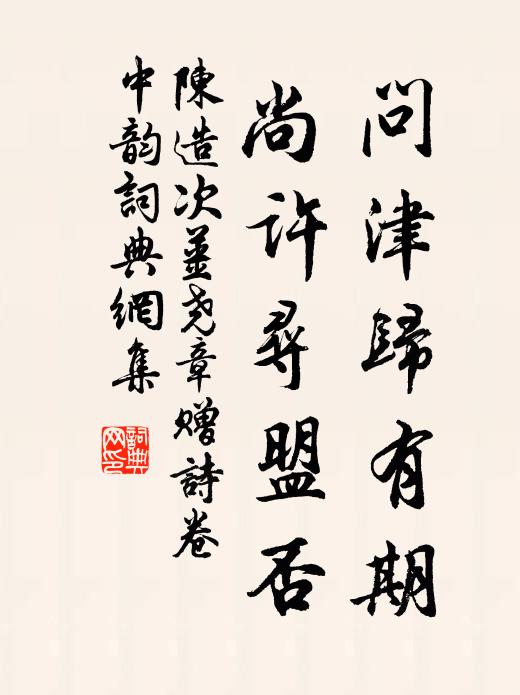 問津歸有期
尚許尋盟否
陳造次薑尧章贈詩卷
中韵詞典網集
詞典
网印